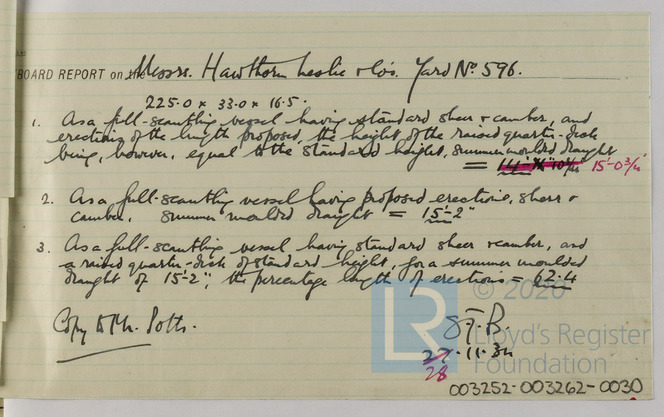 BOARD REPORT on the Messrs. Hawthorn Leslie & Co's. Yard No 596.
225.0 x 33.0 x 16.5.
1. As a full-scantling vessel having standard sheer & camber, and
erections of the length proposed, the height of the raised quarter-deck
being, however, equal to the standard height, summer moulded draught
= 15'-0¾"
2. As a full-scantling vessel having proposed erections, sheer &
camber. summer moulded draught = 15'-2"
3. As a full-scantling vessel having standard sheer & camber, and
a raised quarter-deck of standard height, for a summer moulded
draught of 15'-2", the percentage length of erections = 62.4
Copy to Mr. Potts.
S.F.B.
27.11.34
28
LR
© 2020
Lloyd's Register
Foundation
003252-003262-0030